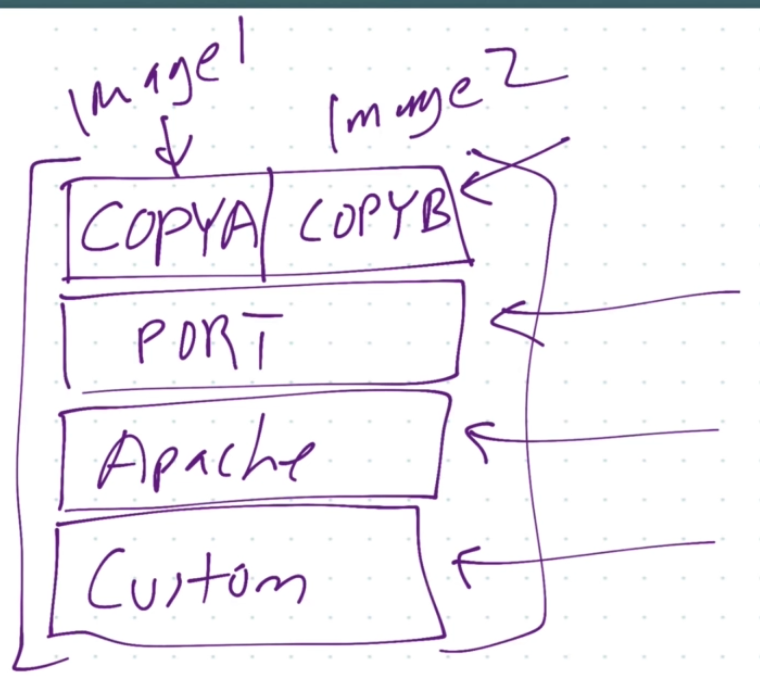 Image1
Image2
COPYA COPYB
PORT
Apache
Custom